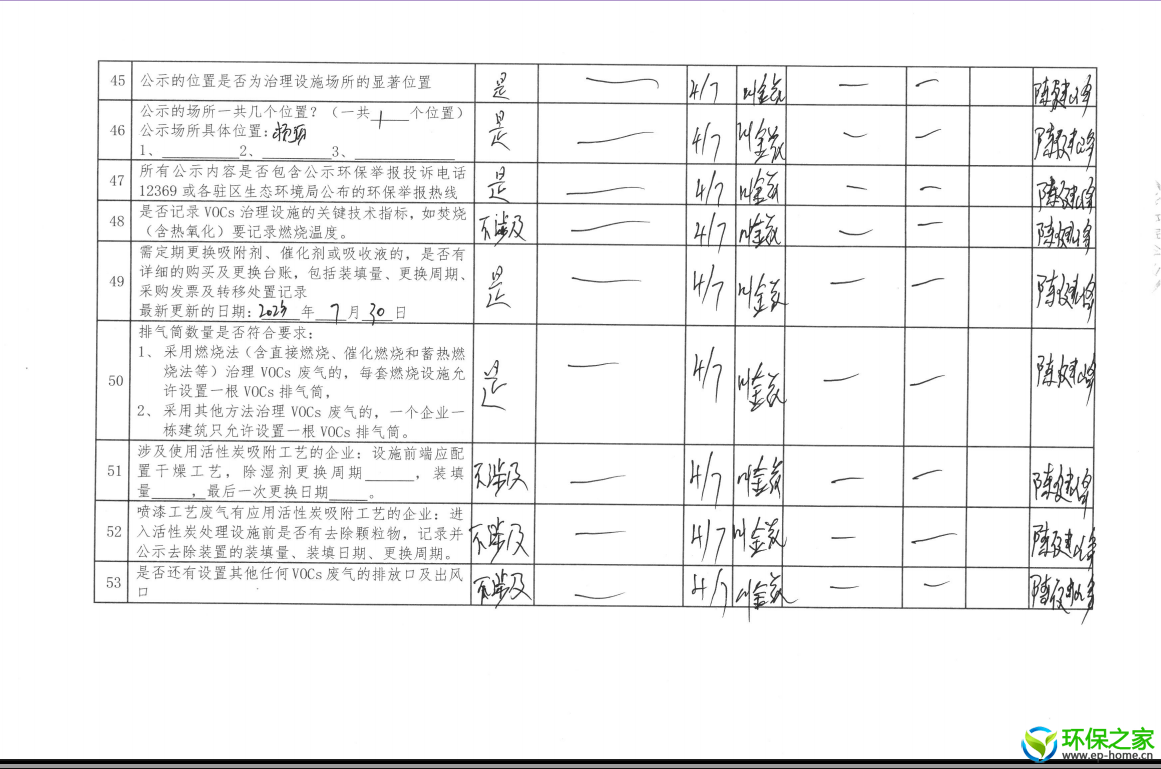 45 公示的位置是否为治理设施场所的显著位置 是 — 4/7 — —
公示的场所一共几个位置？（一共 1 个位置）
46 公示场所具体位置： 是 — 4/7 — —
1、 2、 3、
47 所有公示内容是否包含公示环保举报投诉电话 是 — 4/7 — —
12369 或各驻区生态环境局公布的环保举报热线
48 是否记录 VOCs 治理设施的关键技术指标，如焚烧 不涉及 — 4/7 — —
（含热氧化）要记录燃烧温度。
需定期更换吸附剂、催化剂或吸收液的，是否有
49 详细的购买及更换台账，包括装填量、更换周期、 是 — 4/7 — —
采购发票及转移处置记录
最新更新的日期： 年 7 月 30 日
排气筒数量是否符合要求：
1、 采用燃烧法（含直接燃烧、催化燃烧和蓄热燃
50 烧法等）治理 VOCs 废气的，每套燃烧设施允 是 — 4/7 — —
许设置一根 VOCs 排气筒，
2、 采用其他方法治理 VOCs 废气的，一个企业一
栋建筑只允许设置一根 VOCs 排气筒。
涉及使用活性炭吸附工艺的企业：设施前端应配
51 置干燥工艺，除湿剂更换周期 ，装填 不涉及 — 4/7 — —
量 ，最后一次更换日期 。
喷漆工艺废气有应用活性炭吸附工艺的企业：进
52 入活性炭处理设施前是否有去除颗粒物，记录并 不涉及 — 4/7 — —
公示去除装置的装填量、装填日期、更换周期。
53 是否还有设置其他任何 VOCs 废气的排放口及出风 不涉及 — 4/7 — —
口
环保之家
www.ep-home.cn